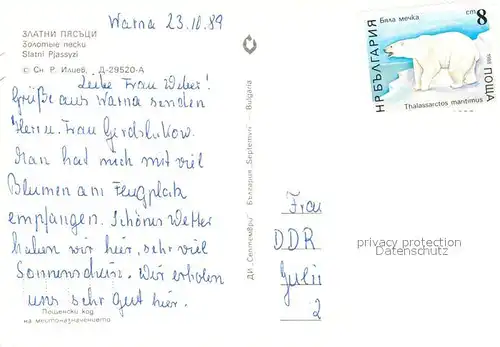 Warna 23.10.89
ЗЛАТНИ ПЯСЪЦИ
Золотые пески
Slatni Pjassyzi
© Сн. Р. Илиев. Д-29520-А
Liebe Frau Weber!
Grüße aus Warna senden
Herr u. Frau
Man hat mich mit viel
Blumen am Flugplatz
empfangen. Schönes Wetter
haben wir hier, sehr viel
Sonnenschein. Wir erholen
uns sehr gut hier.
Пощенски код
на местоназначението
ДИ „Септември“ България „Septemvri“ — Bulgaria
Бяла мечка
cm 8
НРБЪЛГАРИЯ
ПОЩА
1988
Thalassarctos maritimus
Frau
DDR
privacy protection
Datenschutz
2